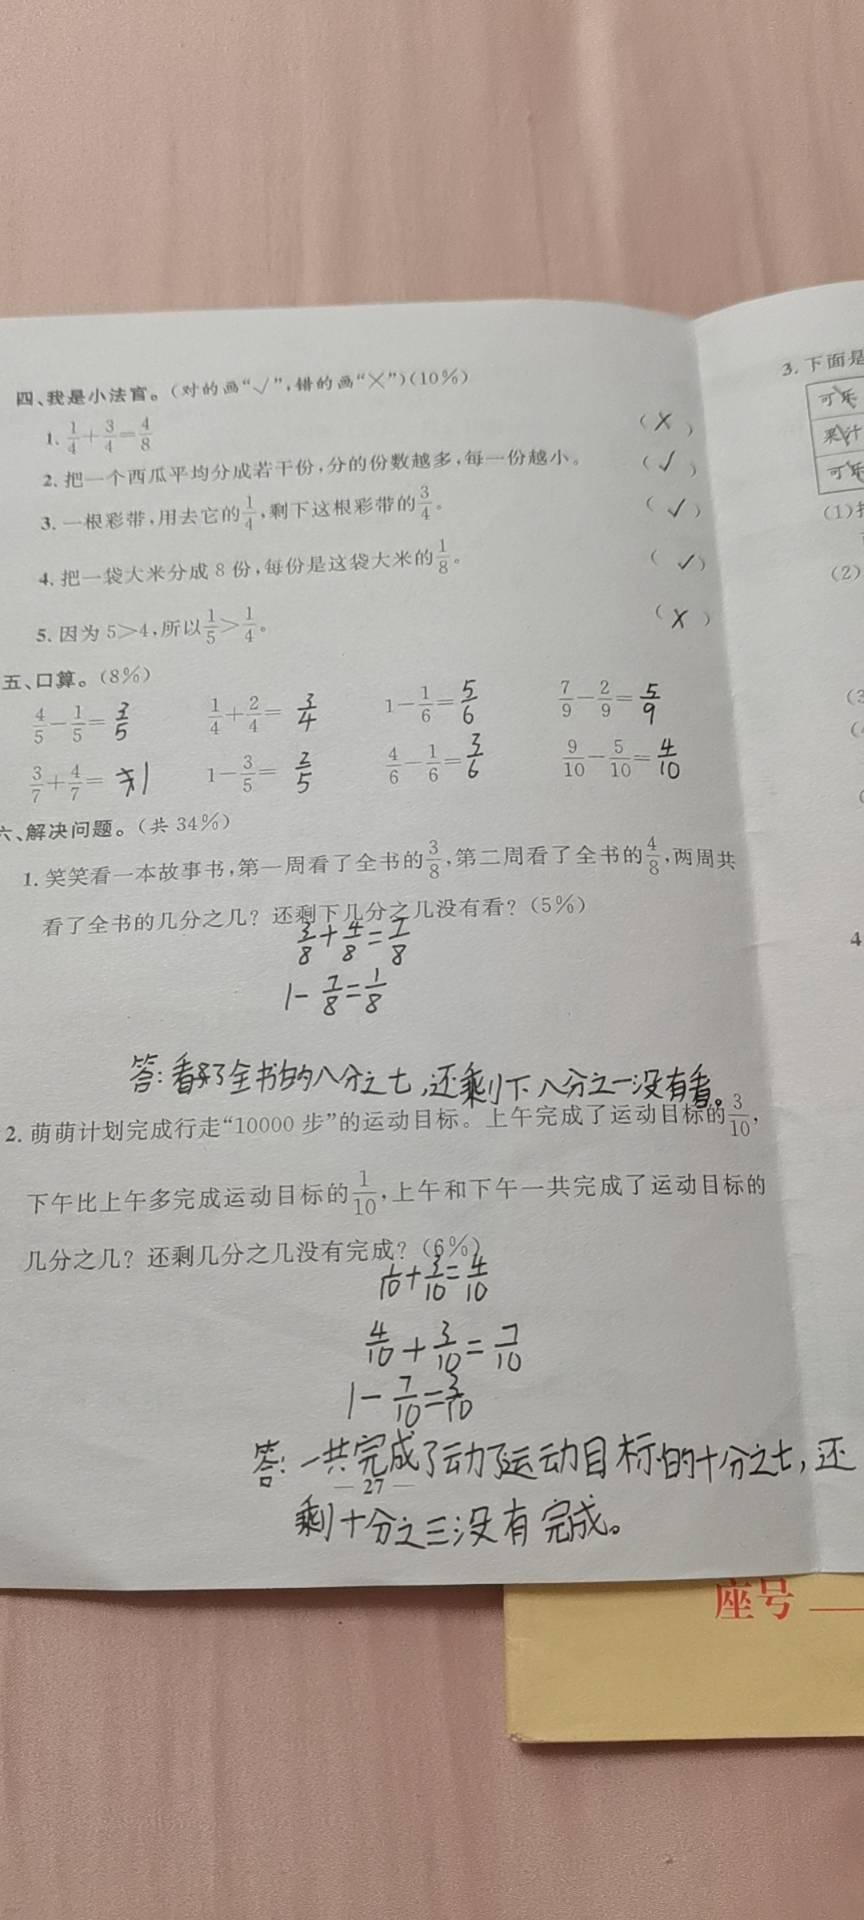 四、我是小法官。(对的画“√”,错的画“×”)(10%)
1. 1/4+3/4=4/8 (×)
2. 把一个西瓜平均分成若干份,分的份数越多,每一份越小。 (√)
3. 一根彩带,用去它的1/4,剩下这根彩带的3/4。 (√)
4. 把一袋大米分成8份,每份是这袋大米的1/8。 (√)
5. 因为5>4,所以1/5>1/4。 (×)
五、口算。(8%)
4/5-1/5=3/5 1/4+2/4=3/4 1-1/6=5/6 7/9-2/9=5/9
3/7+4/7= 1 1-3/5=2/5 4/6-1/6=3/6 9/10-5/10=4/10
六、解决问题。(共34%)
1. 笑笑看一本故事书,第一周看了全书的3/8,第二周看了全书的4/8,两周共
看了全书的几分之几?还剩下几分之几没有看?(5%)
3/8+4/8=7/8
1-7/8=1/8
答:看了全书的八分之七,还剩下八分之一没有看。
2. 萌萌计划完成行走“10000步”的运动目标。上午完成了运动目标的3/10,
下午比上午多完成运动目标的1/10,上午和下午一共完成了运动目标的
几分之几?还剩几分之几没有完成?(6%)
1/10+3/10=4/10
4/10+3/10=7/10
1-7/10=3/10
答:一共完成了动了运动目标的十分之七,还
— 27 —
剩十分之三没有完成。
3. 下面是
可乐
果汁
可乐
(1)
(2)
(3
4
座号